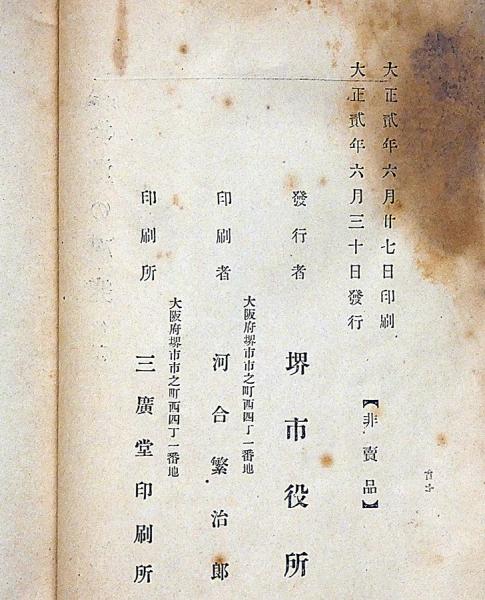 大正貳年六月廿七日印刷
大正貳年六月三十日發行
【非賣品】
發行者 堺市役所
大阪府堺市市之町西四丁一番地
印刷者 河合繁治郎
大阪府堺市市之町西四丁一番地
印刷所 三廣堂印刷所